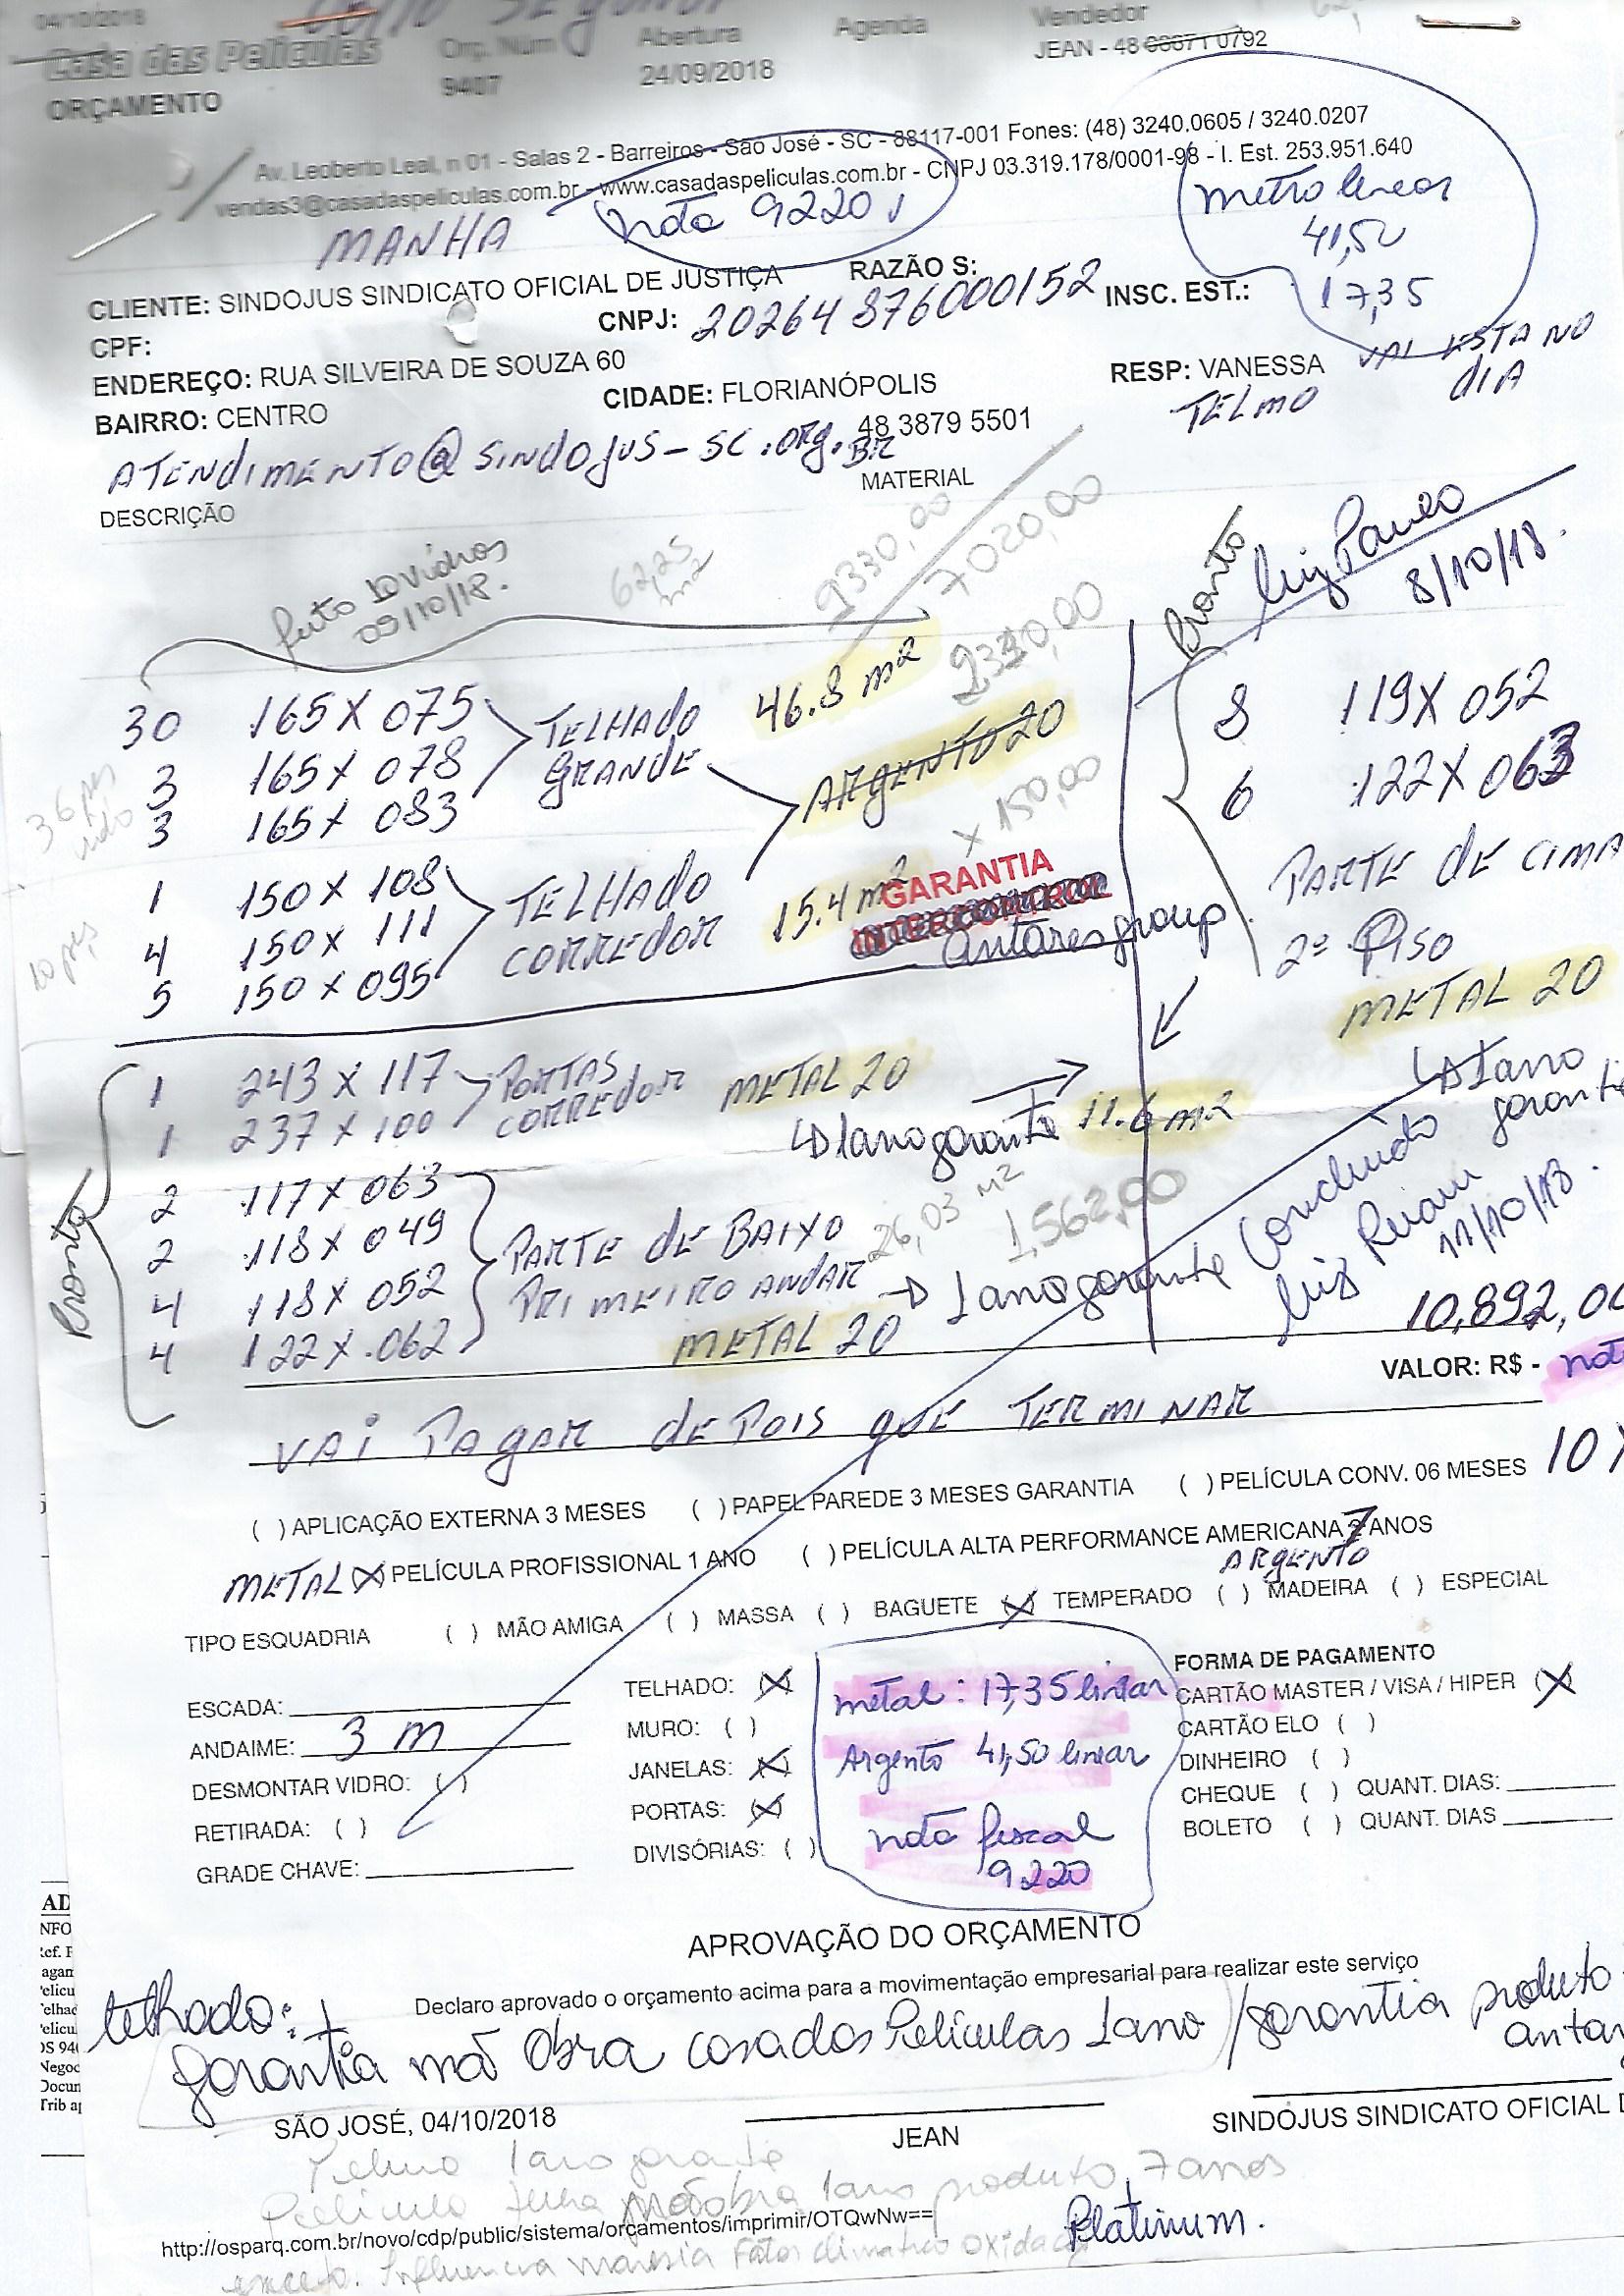 04/10/2018
Casa das Películas
ORÇAMENTO
Orç. Núm
9407
Abertura
24/09/2018
Agenda
Vendedor
JEAN - 48 0792
Av. Leoberto Leal, n 01 - Salas 2 - Barreiros - São José - SC - 88117-001 Fones: (48) 3240.0605 / 3240.0207
vendas3@casadaspeliculas.com.br - www.casadaspeliculas.com.br - CNPJ 03.319.178/0001-98 - I. Est. 253.951.640
MANHA
nota 9220
metro linear
41,50
17,35
CLIENTE: SINDOJUS SINDICATO OFICIAL DE JUSTIÇA RAZÃO S:
CPF: CNPJ: 20264876000152 INSC. EST.:
ENDEREÇO: RUA SILVEIRA DE SOUZA 60
RESP: VANESSA VAI ESTA NO DIA
TELMO
BAIRRO: CENTRO CIDADE: FLORIANÓPOLIS
48 3879 5501
ATENDIMENTO@SINDOJUS-SC.ORG.BR
DESCRIÇÃO MATERIAL
feito 10 vidros
09/10/18.
62,25
m2
9330,00
7020,00
2.330,00
Pronto
Luiz Paulo
8/10/18.
30 165 X 075
3 165 X 078
3 165 X 083
TELHADO
GRANDE
46.8 m2
ARGENTO 20
x 150,00
36 pçs
1 150 X 108
4 150 X 111
5 150 X 095
TELHADO
CORREDOR
15.4 m2
10 pçs
GARANTIA
INTERCONTROL
Antares group
8 119 X 052
6 122 X 063
PARTE DE CIMA
2º PISO
METAL 20
1 ano
Pronto
1 243 X 117
1 237 X 100
PORTAS
CORREDOR
METAL 20
1 ano garantia
11.6 m2
2 117 X 063
2 118 X 049
4 118 X 052
4 122 X .062
PARTE DE BAIXO
PRIMEIRO ANDAR
METAL 20
1 ano garantia
26,03 m2
1,562,00
Concluído
Luiz
11/10/18.
10,892,00
VALOR: R$ -
VAI PAGAR DEPOIS QUE TERMINAR
( ) APLICAÇÃO EXTERNA 3 MESES ( ) PAPEL PAREDE 3 MESES GARANTIA ( ) PELÍCULA CONV. 06 MESES
10X
METAL (X) PELÍCULA PROFISSIONAL 1 ANO ( ) PELÍCULA ALTA PERFORMANCE AMERICANA 7 ANOS
ARGENTO
TIPO ESQUADRIA ( ) MÃO AMIGA ( ) MASSA ( ) BAGUETE (X) TEMPERADO ( ) MADEIRA ( ) ESPECIAL
ESCADA:
ANDAIME: 3 m
DESMONTAR VIDRO: ( )
RETIRADA: ( )
GRADE CHAVE:
TELHADO: (X)
MURO: ( )
JANELAS: (X)
PORTAS: (X)
DIVISÓRIAS: ( )
metal: 17,35 linear
Argento 41,50 linear
nota fiscal
9220
FORMA DE PAGAMENTO
CARTÃO MASTER / VISA / HIPER (X)
CARTÃO ELO ( )
DINHEIRO ( )
CHEQUE ( ) QUANT. DIAS:
BOLETO ( ) QUANT. DIAS
APROVAÇÃO DO ORÇAMENTO
Declaro aprovado o orçamento acima para a movimentação empresarial para realizar este serviço
telhado:
garantia mão Obra casa das Películas 1 ano / garantia produto
SÃO JOSÉ, 04/10/2018
JEAN
SINDOJUS SINDICATO OFICIAL D
1 ano garantia
Película mão obra 1 ano produto 7 anos
Platinum.
http://osparq.com.br/novo/cdp/public/sistema/orçamentos/imprimir/OTQwNw==
exceto. Influencia maresia Fator climatico